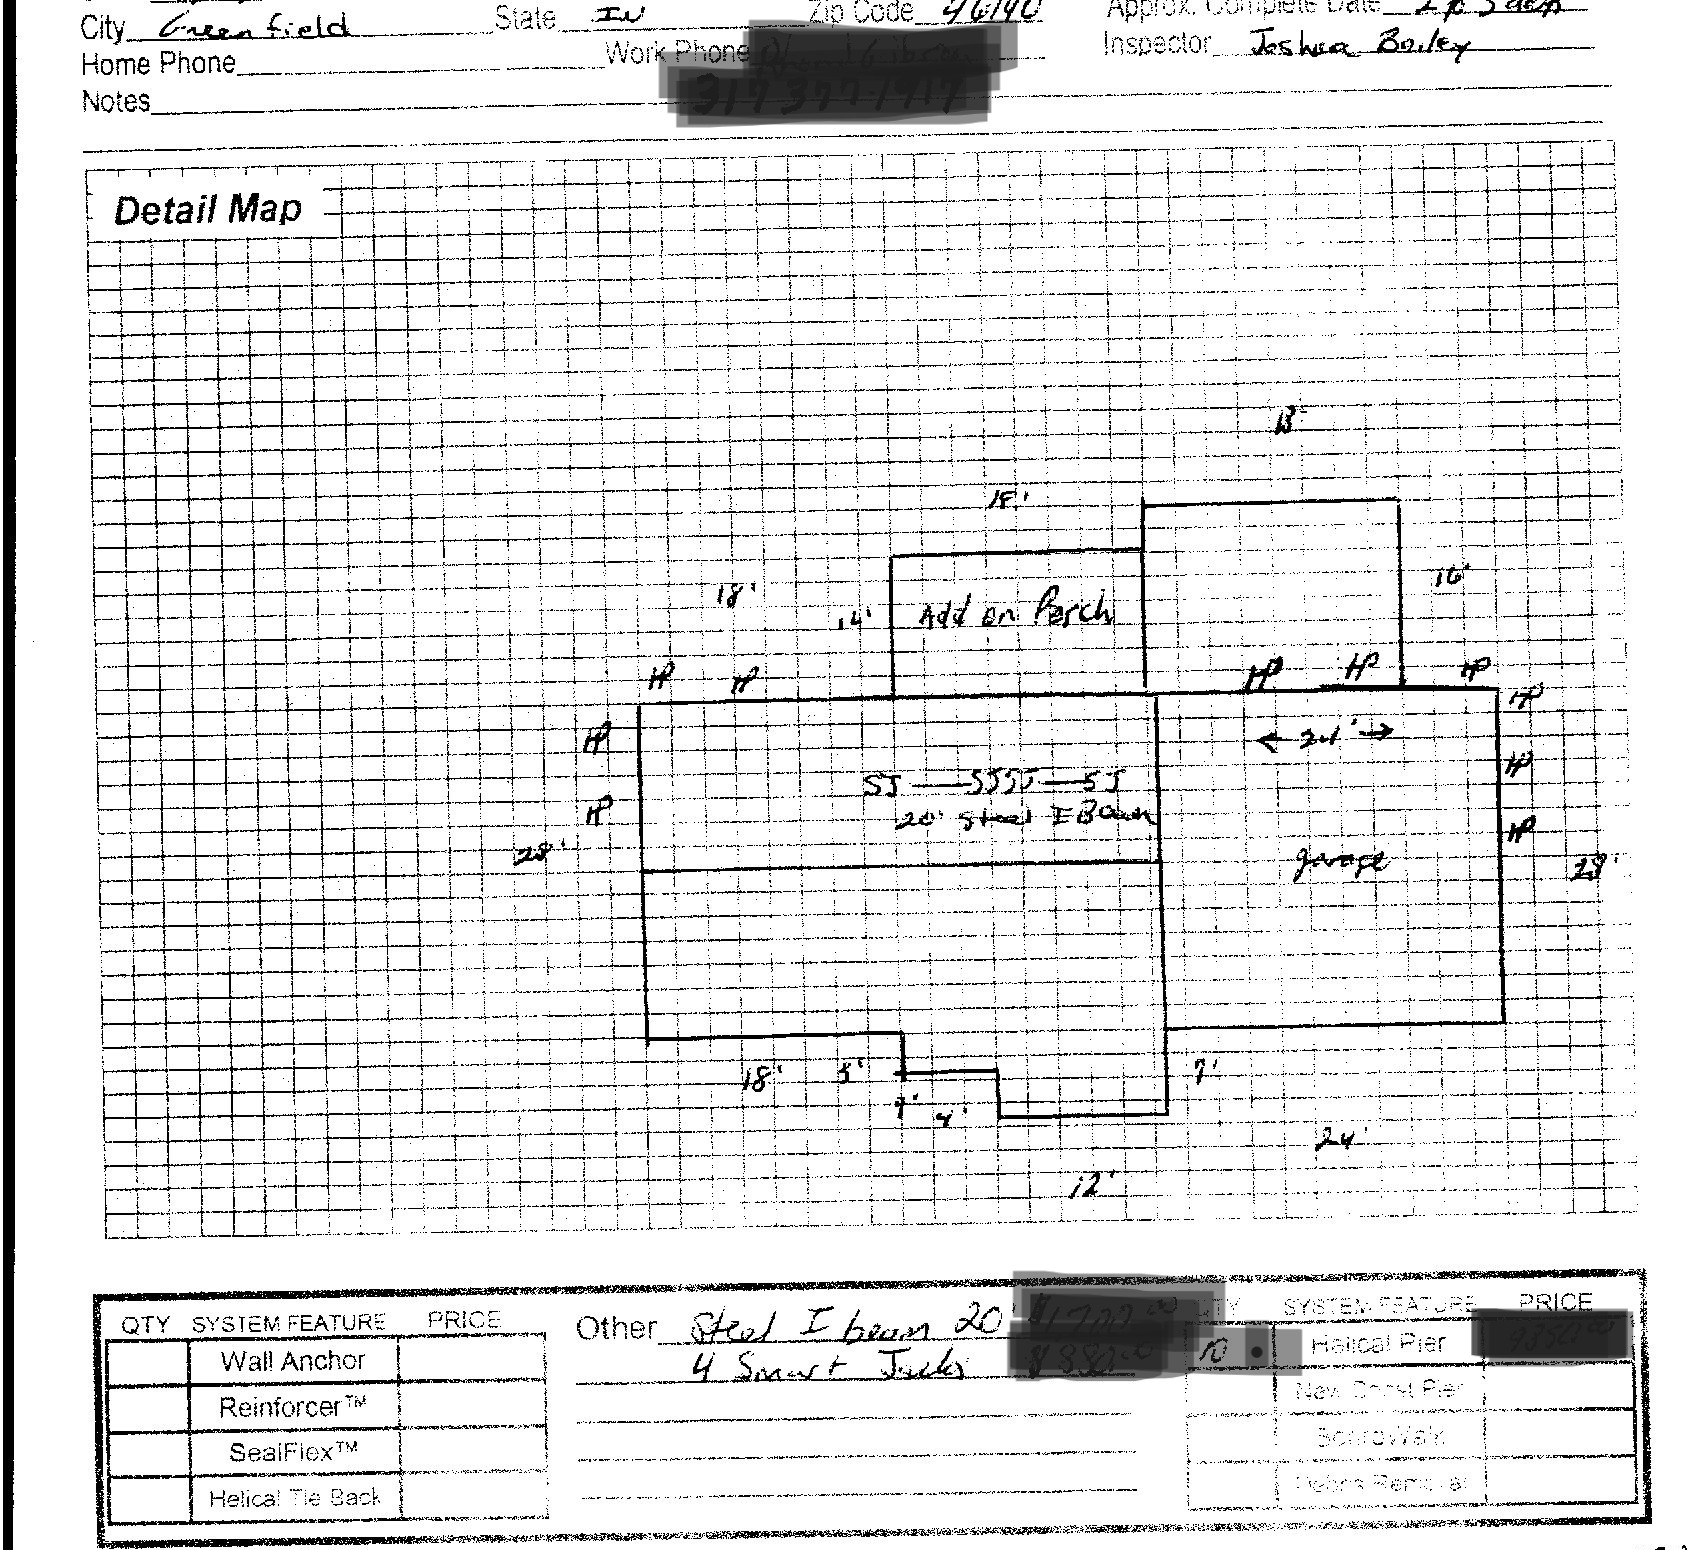 City Greenfield State IN Zip Code 46140 Approx. Complete Date
Home Phone Work Phone Inspector Joshua Bailey
Notes
Detail Map
18'
16'
18'
14'
Add on Porch
HP HP HP HP HP
HP
HP
HP
HP
HP
24'
SJ SJSJ SJ
20' Steel I Beam
garage
28'
28'
18' 5'
4' 4'
7'
24'
12'
QTY SYSTEM FEATURE PRICE
Wall Anchor
Reinforcer™
SealFlex™
Helical Tie Back
Other Steel I beam 20'
4 Smart Jacks
QTY SYSTEM FEATURE PRICE
10 Helical Pier
New Const Pier
BoardWalk
Debris Removal